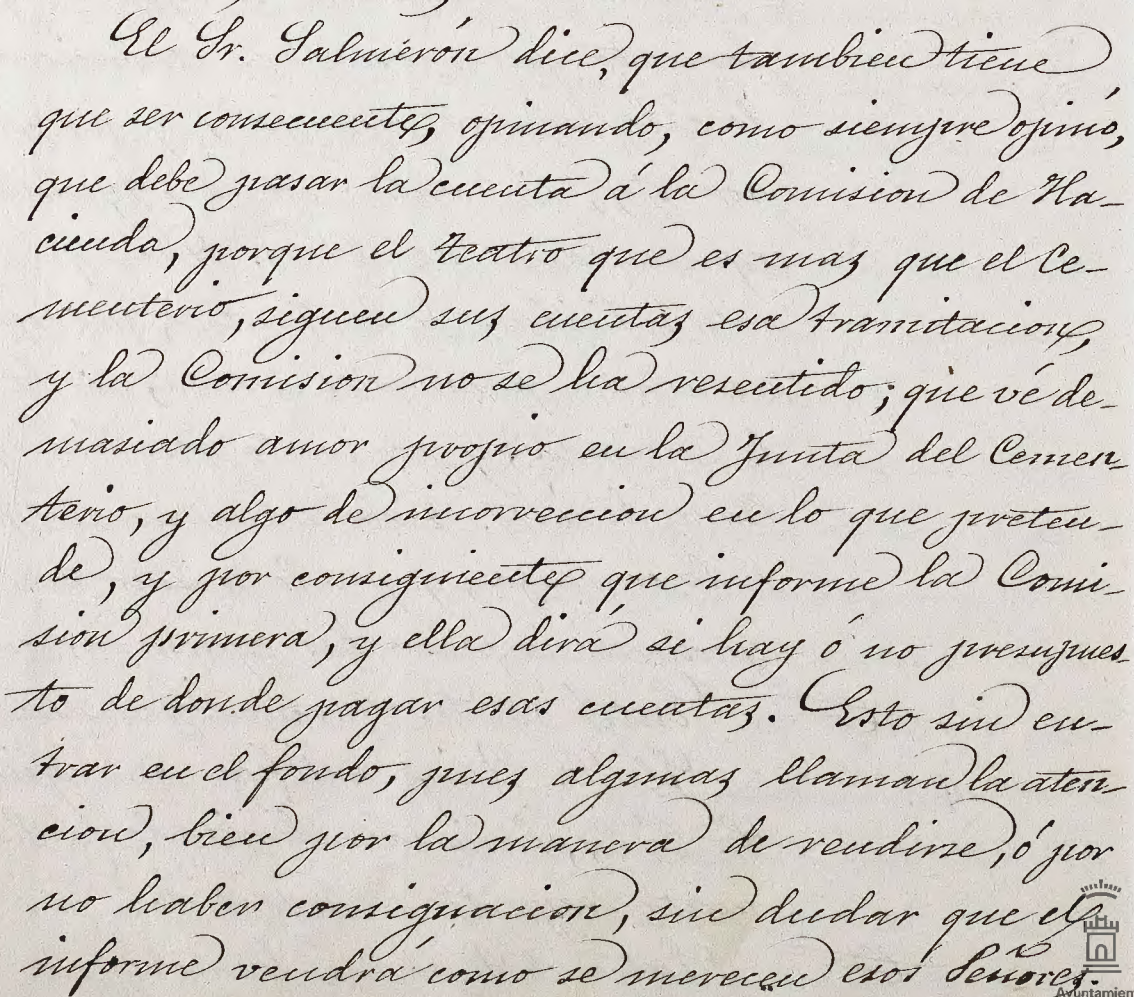 El Sr. Salmerón dice, que tambien tiene
que ser consecuente, opinando, como siempre opinó,
que debe pasar la cuenta á la Comision de Ha-
cienda, porque el teatro que es mas que el Ce-
menterio, siguen sus cuentas esa tramitacion,
y la Comision no se ha resentido; que vé de-
masiado amor propio en la Junta del Cemen-
terio, y algo de incorreccion en lo que preten-
de, y por consiguiente que informe la Comi-
sion primera, y ella dirá si hay ó no presupues-
to de donde pagar esas cuentas. Esto sin en-
trar en el fondo, pues algunas llaman la aten-
cion, bien por la manera de rendirse, ó por
no haber consignacion, sin dudar que el
informe vendrá como se merecen esos Señores.
Ayuntamien